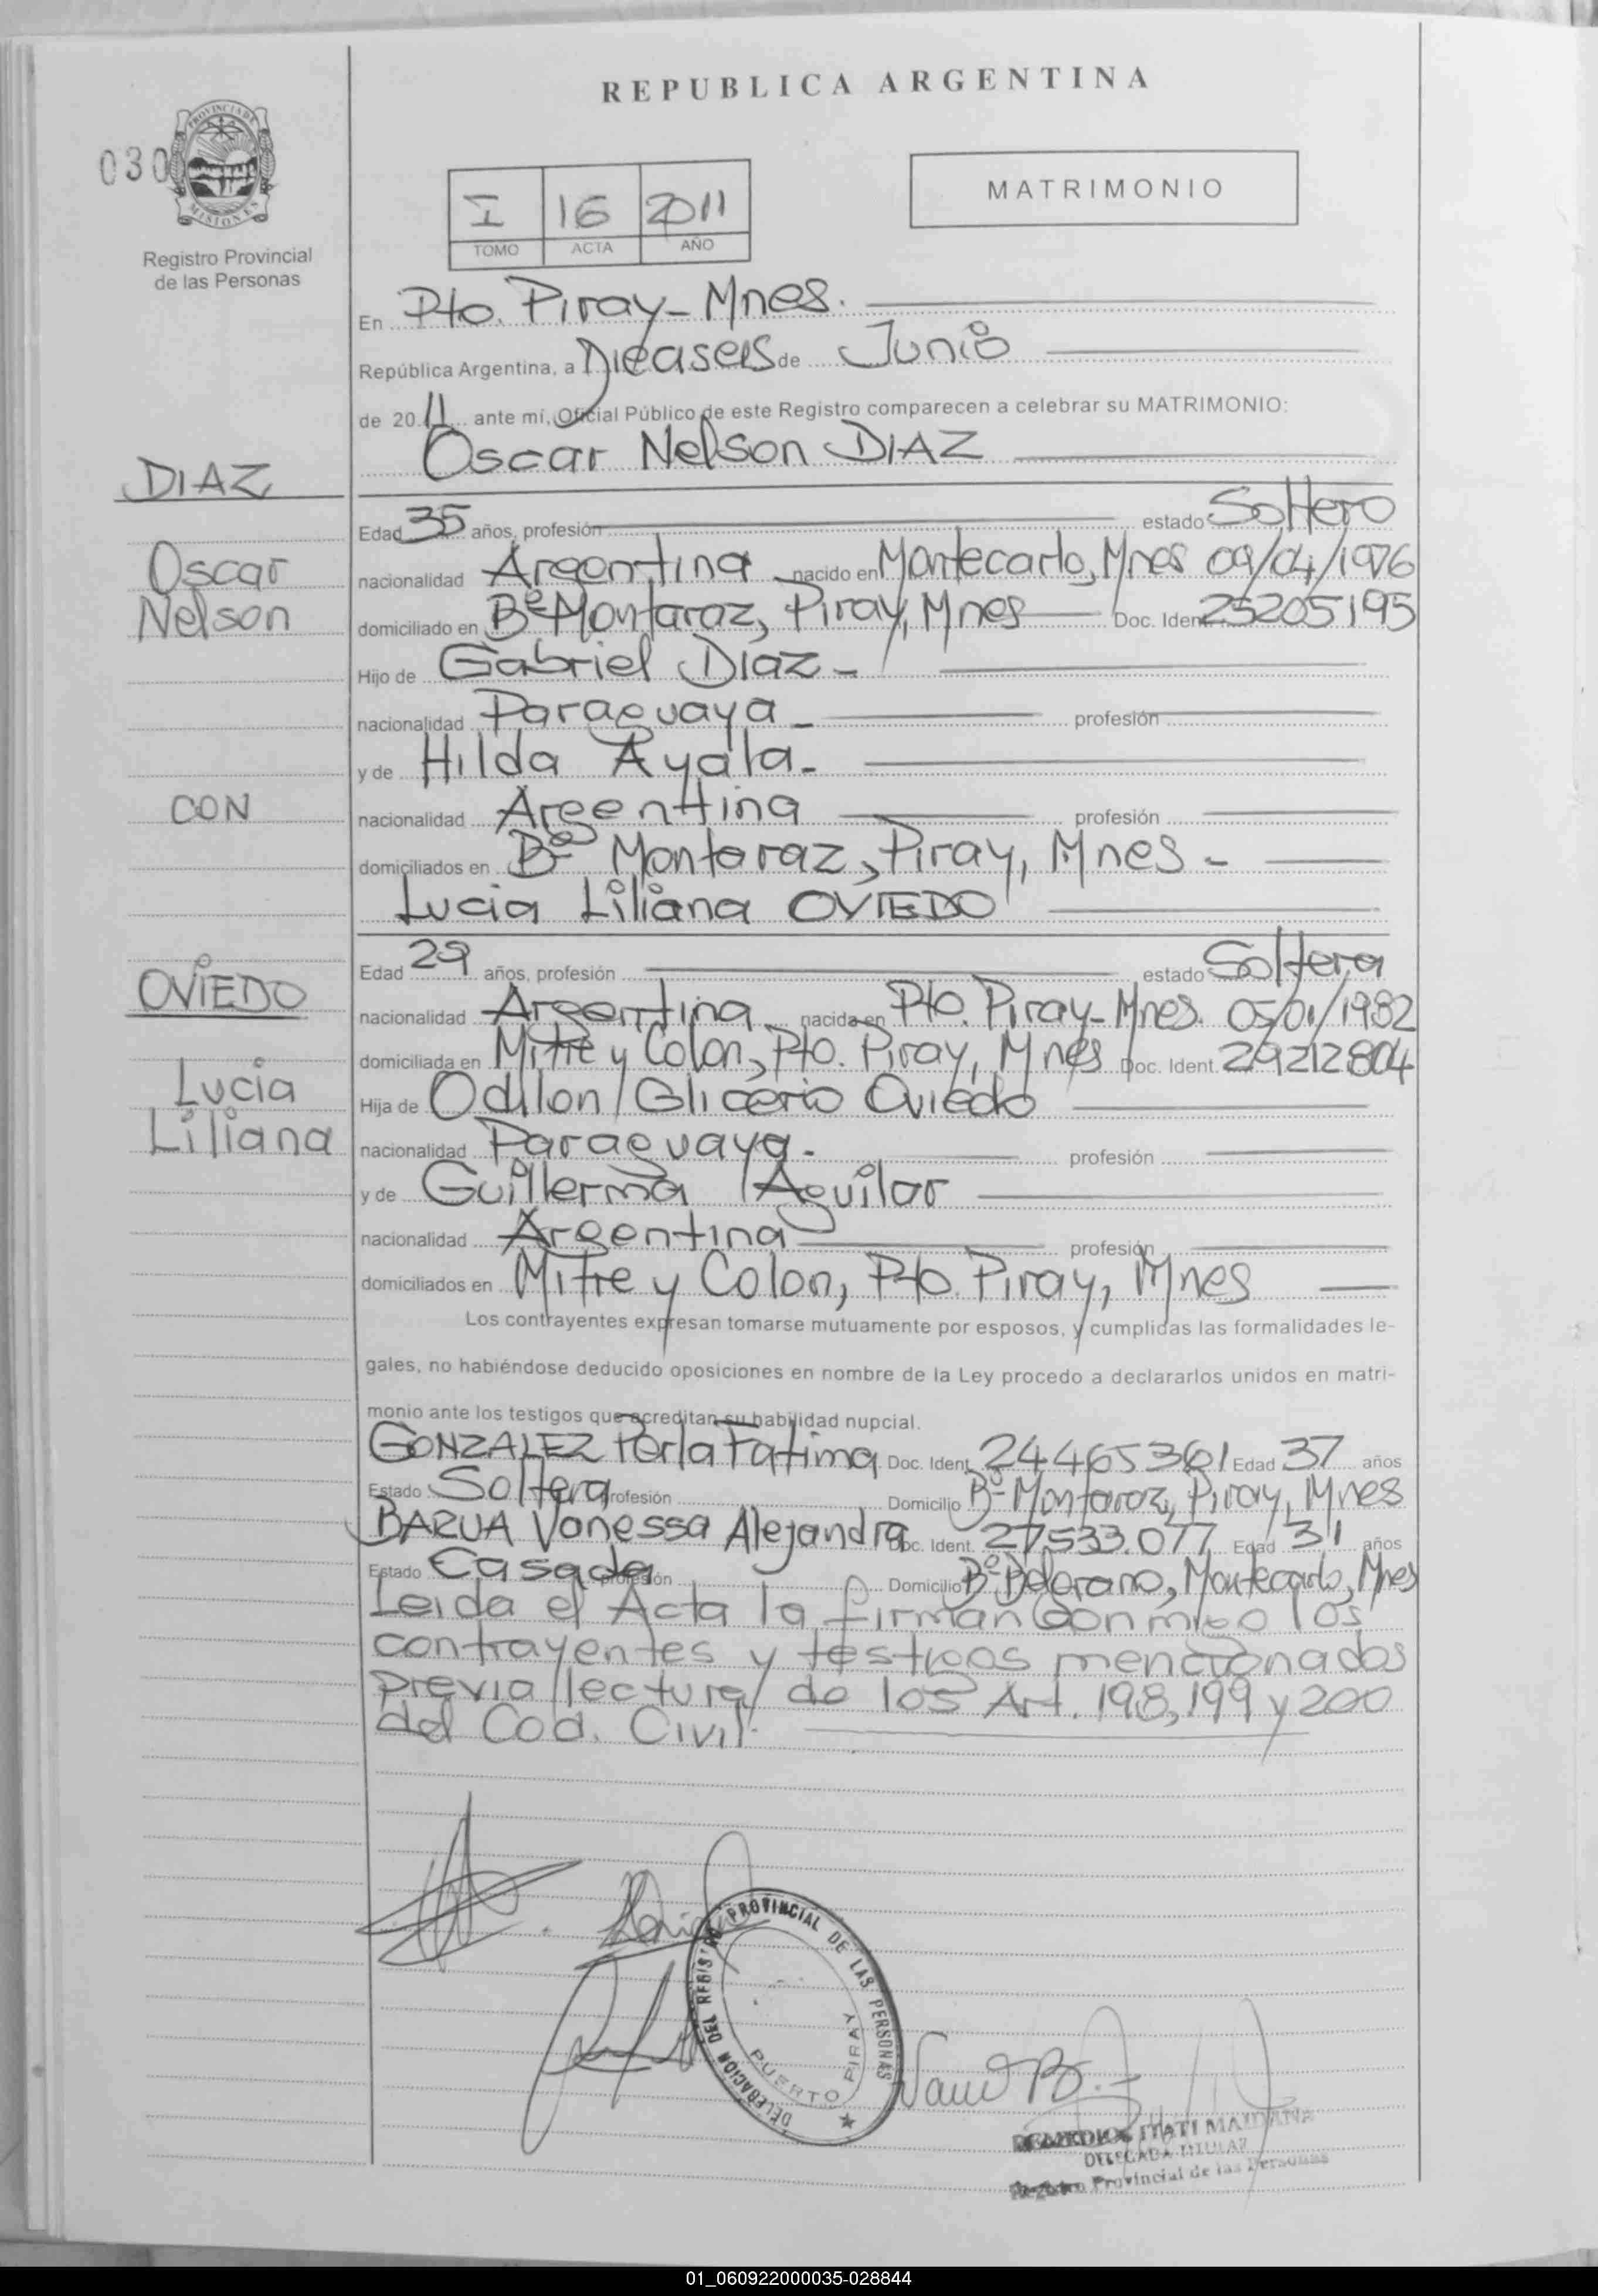 REPUBLICA ARGENTINA
030
PROVINCIA DE MISIONES
Registro Provincial
de las Personas
I 16 2011
TOMO ACTA AÑO
MATRIMONIO
En Pto. Piray - Mnes.
República Argentina, a Dieaseis de Junio
de 20 11 ante mí, Oficial Público de este Registro comparecen a celebrar su MATRIMONIO:
Oscar Nelson DIAZ
DIAZ
Oscar
Nelson
CON
OVIEDO
Lucia
Liliana
Edad 35 años, profesión estado Soltero
nacionalidad Argentina nacido en Montecarlo, Mnes 09/04/1976
domiciliado en Bº Montaraz, Piray, Mnes Doc. Ident. 25205195
Hijo de Gabriel Diaz -
nacionalidad Paraguaya - profesión
y de Hilda Ayala -
nacionalidad Argentina profesión
domiciliados en Bº Montaraz, Piray, Mnes -
Lucia Liliana OVIEDO
Edad 29 años, profesión estado Soltera
nacionalidad Argentina nacida en Pto. Piray - Mnes. 05/01/1982
domiciliada en Mitre y Colon, Pto. Piray, Mnes Doc. Ident. 29212804
Hija de Odilon Glicerio Oviedo
nacionalidad Paraguaya - profesión
y de Guillerma Aguilar
nacionalidad Argentina profesión
domiciliados en Mitre y Colon, Pto. Piray, Mnes
Los contrayentes expresan tomarse mutuamente por esposos, y cumplidas las formalidades le-
gales, no habiéndose deducido oposiciones en nombre de la Ley procedo a declararlos unidos en matri-
monio ante los testigos que acreditan su habilidad nupcial.
GONZALEZ Perla Fatima Doc. Ident. 24465361 Edad 37 años
Estado Soltera profesión Domicilio Bº Montaraz, Piray, Mnes
BARUA Vanessa Alejandra Doc. Ident. 27533.077 Edad 31 años
Estado Casada profesión Domicilio Bº Belgrano, Montecarlo, Mnes
Leida el Acta la firman conmigo los
contrayentes y testigos mencionados
previa lectura de los Art. 198, 199 y 200
del Cod. Civil.
DELEGACION DEL REGISTRO PROVINCIAL DE LAS PERSONAS
PUERTO PIRAY
REMEDIOS ITATI MAIDANA
DELEGADA TITULAR
Registro Provincial de las Personas
01_060922000035-028844